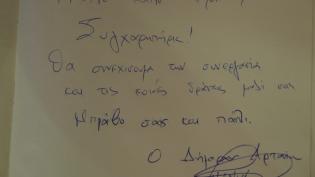 Συγχαρητήρια!
Θα συνεχίσουμε την συνεργασία
και τις κοινές δράσεις μαζί σας
Μπράβο σας και πάλι.
Ο Δήμαρχος Αρταίων